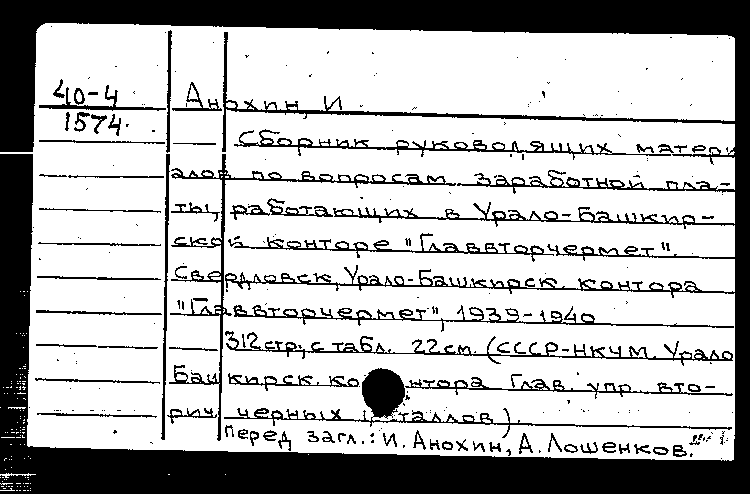 40-4
1574.
Анохин, И
Сборник руководящих матери
алов по вопросам заработной пла-
ты, работающих в Урало-Башкир-
ской конторе "Главвторчермет".
Свердловск, Урало-Башкирск. контора
"Главвторчермет", 1939-1940
312 стр; с табл. 22 см. (СССР-НКЧМ. Урало
Башкирск. контора Глав. упр. вто-
рич. черных металлов).
Перед загл.: И. Анохин, А. Лошенков.